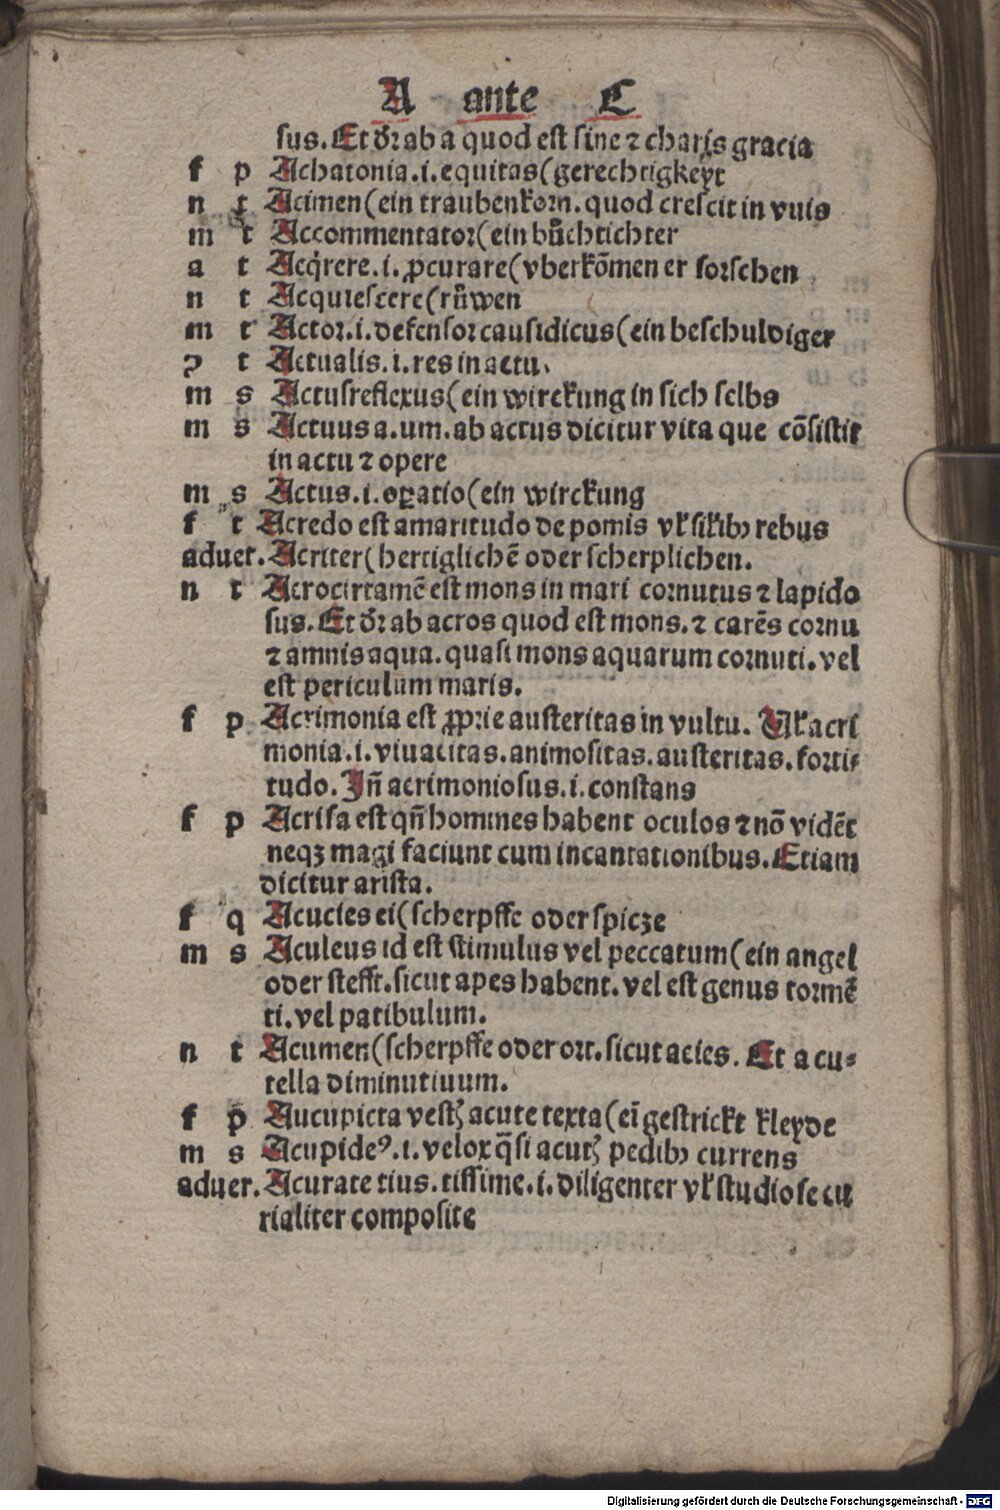 A ante C
sus. Et dr̄ ab a quod est sine ⁊ charis gracia
f p Achatonia .i. equitas (gerechtigkeyt
n t Acimen (ein traubenkorn. quod crescit in vuis
m t Accommentator (ein bůchtichter
a t Acq̇rere .i. ꝓcurare (vberkōmen er forschen
n t Acquiescere (růwen
m t Actor .i. defensor causidicus (ein beschuldiger
ꝯ t Actualis .i. res in actu.
m s Actusreflexus (ein wirckung in sich selbs
m s Actuus a. um. ab actus dicitur vita que cōsistit
in actu ⁊ opere
m s Actus .i. oꝑatio (ein wirckung
f t Acredo est amaritudo de pomis vł siłibꝫ rebus
aduer. Acriter (hertiglichē oder scherplichen.
n t Acrocirtamē est mons in mari cornutus ⁊ lapido
sus. Et dr̄ ab acros quod est mons. ⁊ carēs cornu
⁊ amnis aqua. quasi mons aquarum cornuti. vel
est periculum maris.
f p Acrimonia est ꝓprie austeritas in vultu. Vł acri
monia .i. viuacitas. animositas. austeritas. forti⸗
tudo. Jñ acrimoniosus .i. constans
f p Acrisa est qñ homines habent oculos ⁊ nō vidēt
neqꝫ magi faciunt cum incantationibus. Etiam
dicitur arista.
f q Acucies ei (scherpffe oder spicze
m s Aculeus id est stimulus vel peccatum (ein angel
oder stefft. sicut apes habent. vel est genus tormē
ti. vel patibulum.
n t Acumen (scherpffe oder ort. sicut acies. Et a cu⸗
tella diminutiuum.
f p Aucupicta vestꝫ acute texta (eī gestrickt kleyde
m s Acupideꝰ .i. velox q̄si acutꝫ pedibꝫ currens
aduer. Acurate tius. tissime .i. diligenter vł studiose cu
rialiter composite
Digitalisierung gefördert durch die Deutsche Forschungsgemeinschaft - DFG